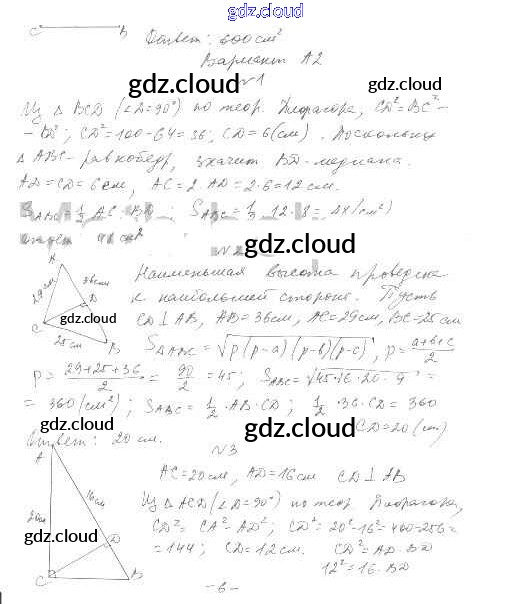 gdz.cloud
C B
Ответ: 600 см²
Вариант А2
gdz.cloud
№1
Из △ BCD (∠D=90°) по теор. Пифагора, CD²=BC²-
- BD²; CD²=100-64=36; CD=6(см). Поскольку
△ ABC - равнобедр, значит BD-медиана.
AD=CD=6 см, AC=2·AD=2·6=12 см.
S ABC = 1/2 AC·BD; S ABC = 1/2·12·8=48(см²)
gdz.cloud
№2
Наименьшая высота проведена
к наибольшей стороне. Пусть
CD⊥AB, AB=36см, AC=29см, BC=25см
A 36см 29см D C 25см B
gdz.cloud
S△ABC=√p(p-a)(p-b)(p-c), p=(a+b+c)/2
p=(29+25+36)/2=90/2=45; S ABC=√45·16·20·9=
=360(см²); S ABC=1/2·AB·CD; 1/2·36·CD=360
gdz.cloud
CD=20(см)
Ответ: 20 см.
№3
AC=20см, AD=16см CD⊥AB
gdz.cloud
A 16см D C B
Из △ ACD (∠D=90°) по теор. Пифагора,
CD²=CA²-AD²; CD²=20²-16²=400-256=
=144; CD=12см. CD²=AD·BD
gdz.cloud
gdz.cloud
12²=16·BD
-6-